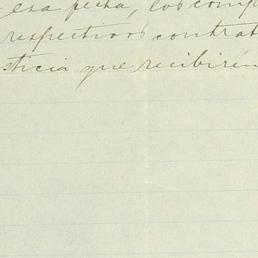 esa fecha, los comp
respectivos contrat
sticia que recibirén